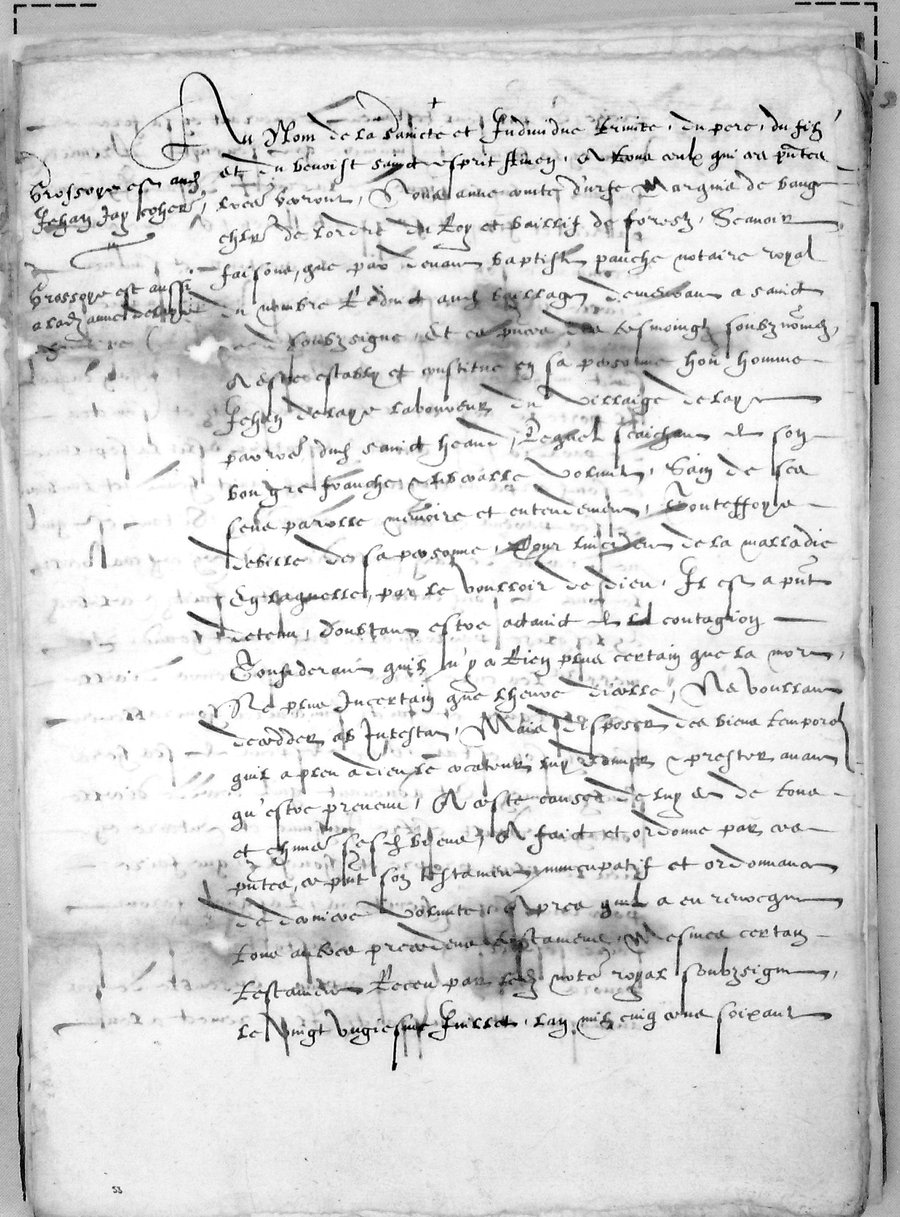 Au Nom de la saincte et Individue trinite, du pere, du filz
et du benoist sainct esprit Amen, A tous ceulx qui ces pntes
lres verront, Nous anne conte durfe Marquis de bauge
chlr de lordre du Roy et bailly de forestz, Scavoir
faisons, que par devant baptiste panche notaire royal
du nombre Reduict aud bailliage demeurant a sainct
soubzsigne, et es pnces des tesmoingtz soubznomez,
A este estably et constitue en sa personne hon homme
Jehan delaye laboureur du villaige delaye
parroe dud sainct heand, Lequel saichant de son
bon gre franche et liberalle volunte, Sain de ses
sens parolle memoire et entendement, Touteffoys
debille de sa personne, Pour lincident de la malladie
En laquelle, par le voulloir de dieu, Il est a pnt
detenu, doubtant estre actainct de la contagion
Considerant quil n'y a Rien plus certain que la mort,
Ne plus Incertain que lheure dicelle, Ne voullant
decedder ab Intestat, Mais disposer des biens temporelz
quil a pleu a dieu le createur luy donner et prester avant
qu'estre prevenu, A ceste cause de luy et de tous
et chuns sesd biens, A faict et ordonne par ces
pntes, ce pnt son testament nuncupatif et ordonnance
de derniere volunte, Apres quil a eu revocque
tous aultres precedens testamens, Mesmes certain
testament Receu par led note royal soubzsigne,
le vingt ungiesme Juillet, lan mil cinq cens soixante
Grossoye est aud
Jehan Jay
Grossoye est aussi
a lad anne delaye